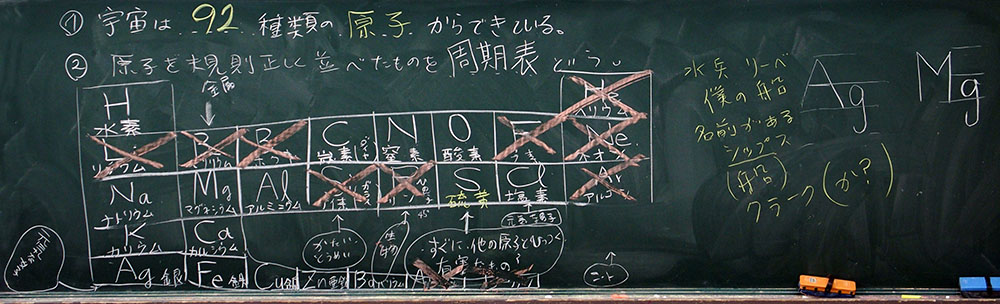 ① 宇宙は 92 種類の 原子 からできている。
② 原子を規則正しく並べたものを 周期表 という
金属
H
水素
He
リウム
Li
リチウム
Be
リウム
B
ホウ
C
炭素
N
窒素
O
酸素
F
Ne
ネオ
Na
ナトリウム
Mg
マグネシウム
Al
アルミニウム
Si
P
リン
S
硫黄
Cl
塩素
Ar
アル
K
カリウム
Ca
カルシウム
かたい
とうめい
生物
すぐに、他の原子とむすびつく
有害なもの?
Ag 銀
Fe 鉄
Cu 銅
Zn 亜鉛
Ba バリウム
水兵 リーベ
僕の 船
名前がある
シップス
(船)
クラーク(か?)
Ag
Mg